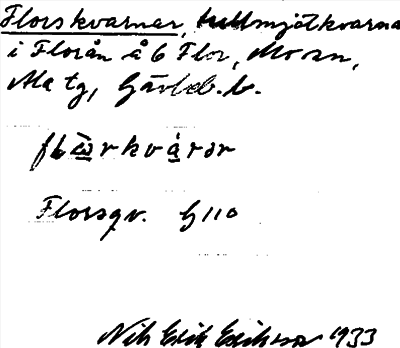 Florskvarnar, tullmjölkvarna
i Florån å 6 Flor, Mo sn,
Ala tg, Gävleb. l.
Florsqv. G 110
Nils Erik Eriksson 1933